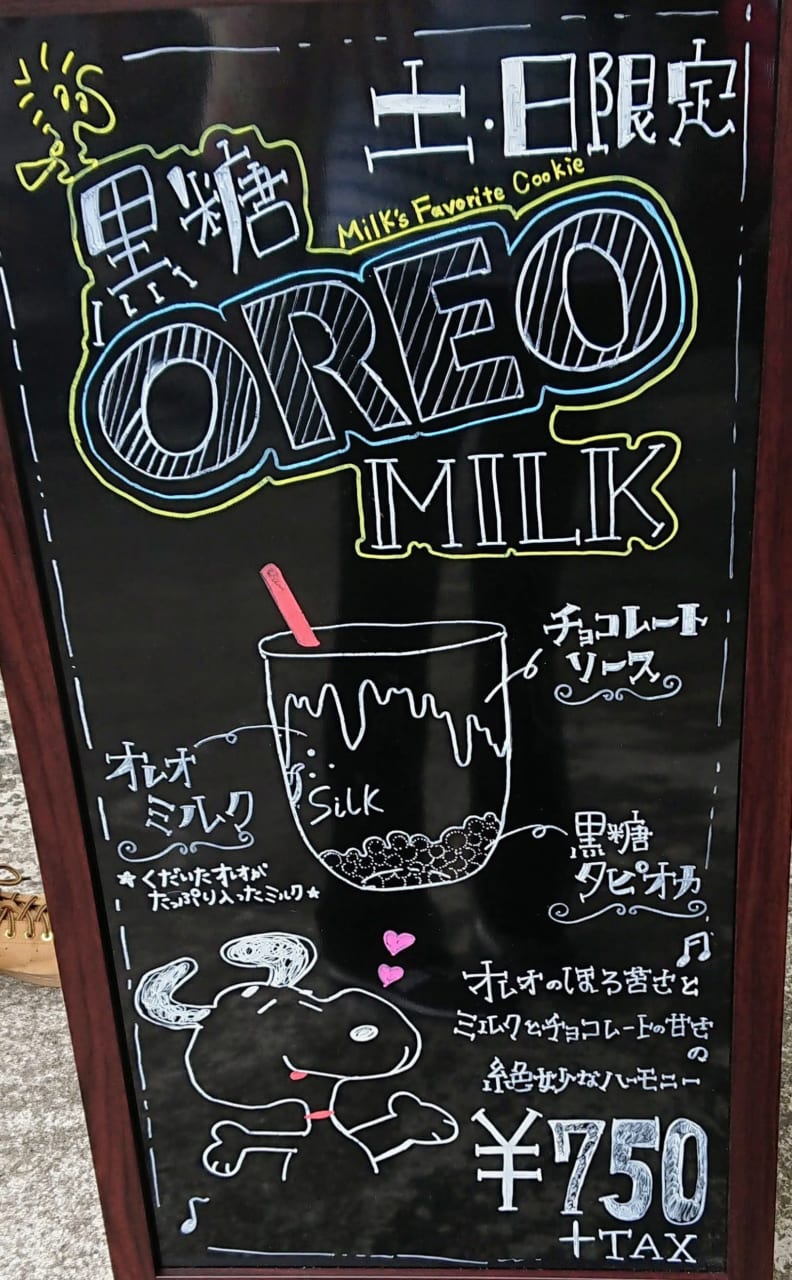 土・日限定
黒糖
Milk's Favorite Cookie
OREO
MILK
チョコレート
ソース
オレオ
ミルク
SiLK
★くだいたオレオが
たっぷり入ったミルク★
黒糖
タピオカ
オレオのほろ苦さと
ミルクとチョコレートの甘さ
の
絶妙なハーモニー
¥750
+TAX